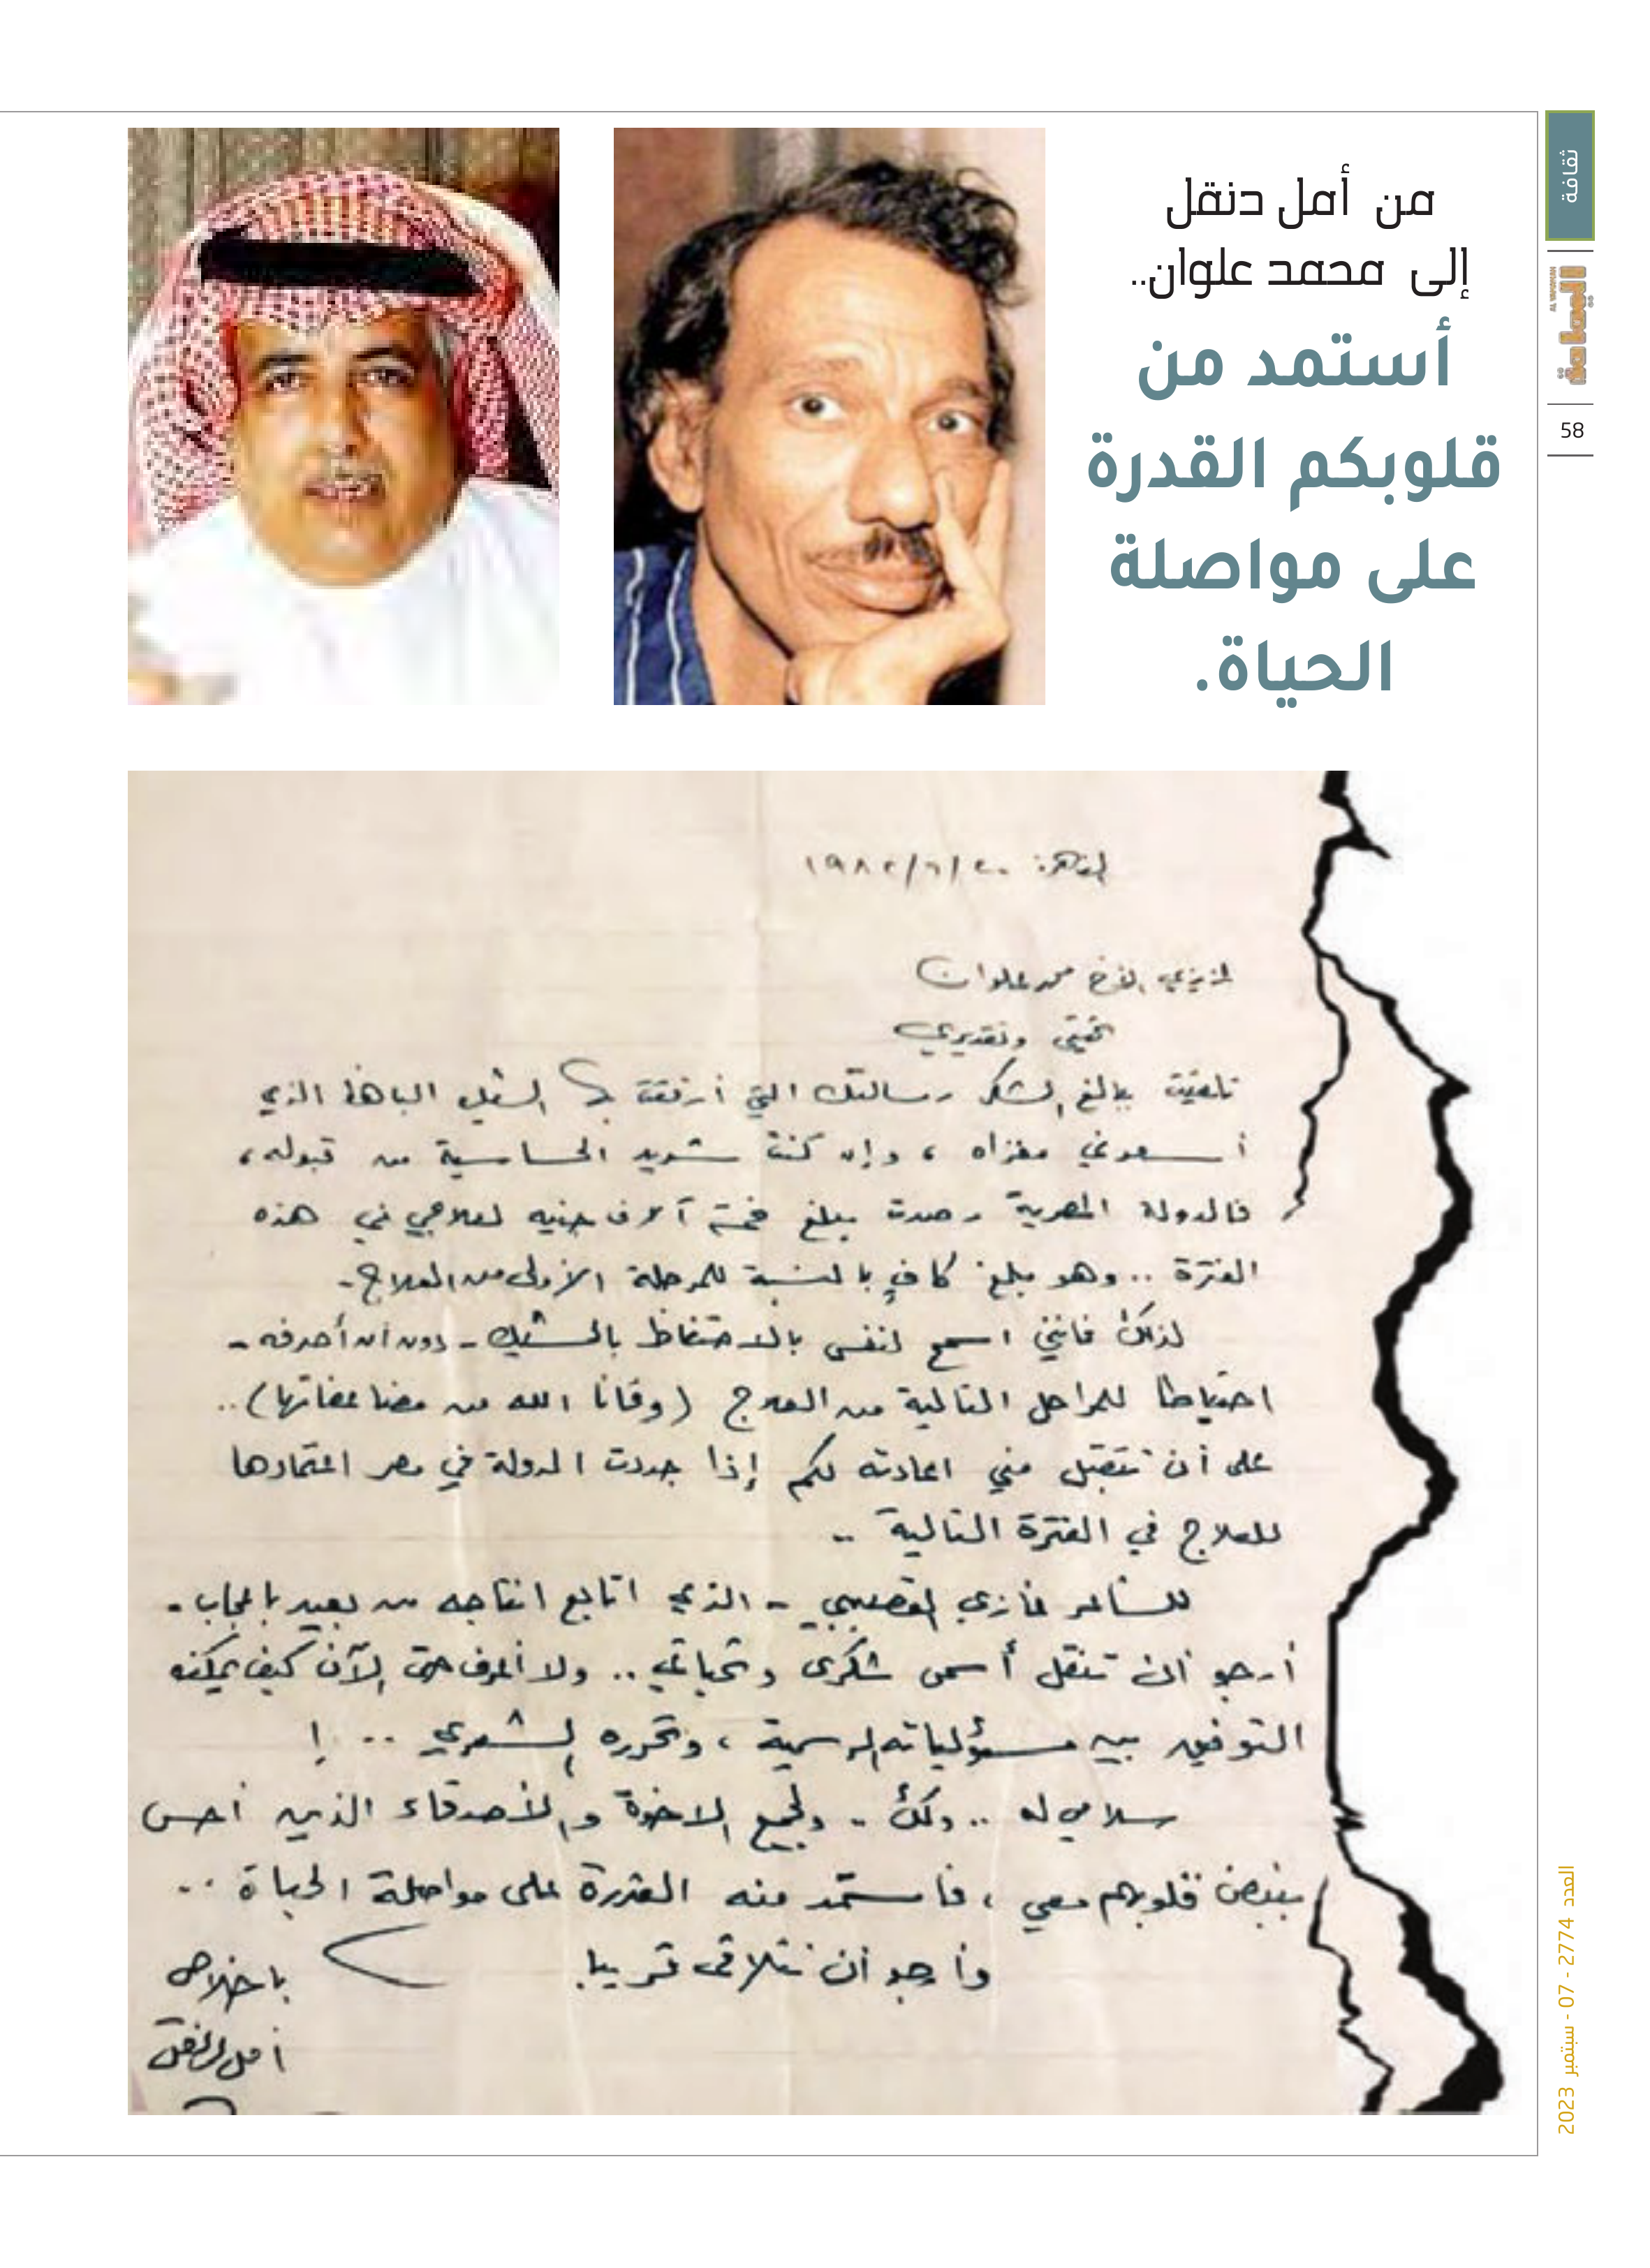 ثقافة
اليمامة
AL YAMAMAH
58
من أمل دنقل
إلى محمد علوان..
أستمد من
قلوبكم القدرة
على مواصلة
الحياة.
القاهرة ٢٠/٦/١٩٨٢
عزيزي الأخ محمد علوان
تحيتي وتقديري
تلقيت ببالغ الشكر رسالتك التي أرفقت بها الشيك الباهظ الذي
أسعدني مغزاه ، وإن كنت شديد الحساسية من قبوله ،
فالدولة المصرية رصدت مبلغ خمسة آلاف جنيه لعلاجي في هذه
الفترة .. وهو مبلغ كافٍ بالنسبة للمرحلة الأولى من العلاج -
لذلك فإنني اسمح لنفسي بالاحتفاظ بالشيك - دون أن أصرفه -
احتياطا للمراحل التالية من العلاج (وقانا الله من مضاعفاتها) ..
على أن تتقبل مني اعادته لكم إذا جددت الدولة في مصر اعتمادها
للعلاج في الفترة التالية ..
للشاعر غازي القصيبي - الذي اتابع انتاجه من بعيد باعجاب -
أرجو أن تنقل أسمى شكري وتحياتي .. ولا أعرف حتى الآن كيف يمكنه
التوفيق بين مسؤلياته الرسمية ، وتحرره الشعري .. !
سلامي له .. ولك - ولجميع الاخوة والأصدقاء الذين أحس
بنبض قلوبهم معي ، فأستمد منه القدرة على مواصلة الحياة ..
وأرجو أن نتلاقى قريبا .
باخلاص
أمل دنقل
العدد 2774 - 07 - سبتمبر 2023